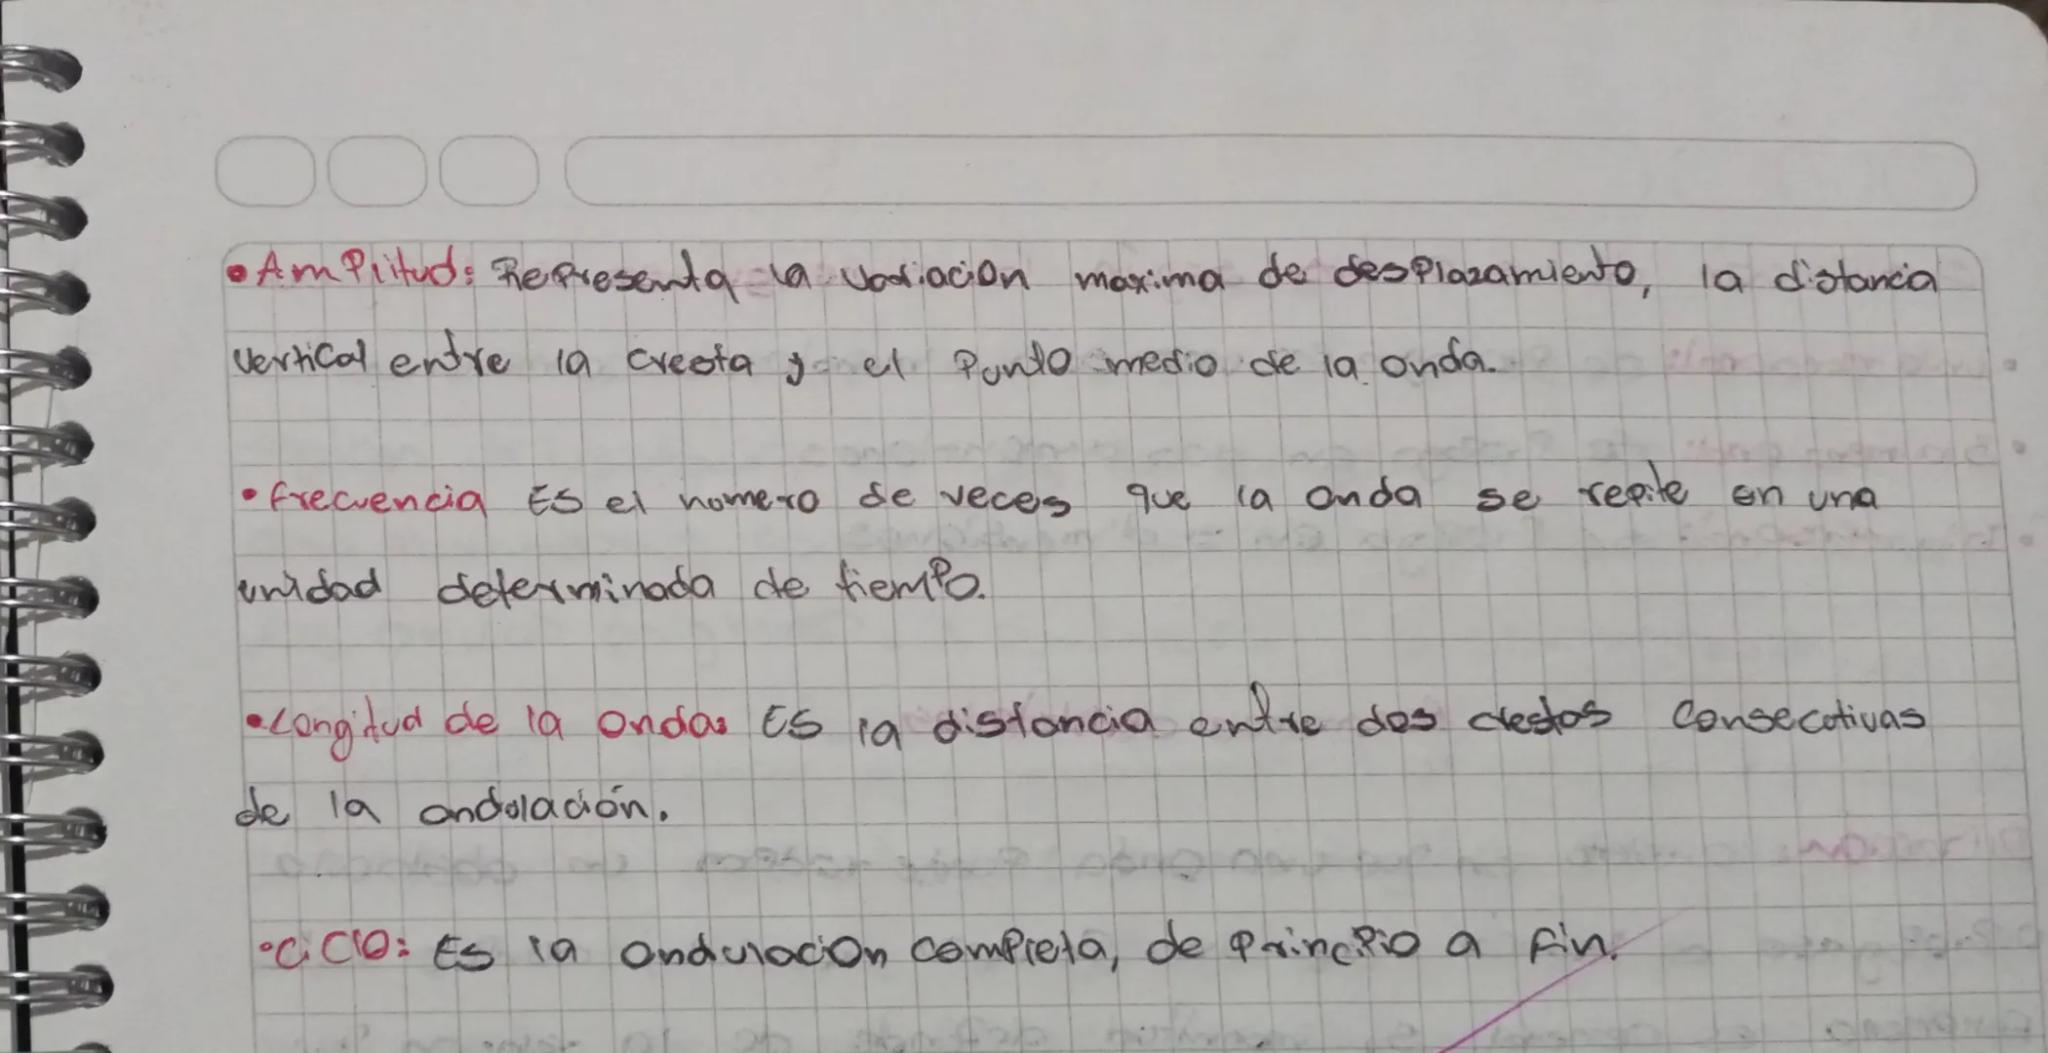 • Amplitud: Representa la variacion maxima de desplazamiento, la distancia
vertical entre la cresta y el Punto medio de la onda.
• frecuencia Es el nomero de veces que la onda se repite en una
unidad determinada de tiempo.
• Longitud de la onda: Es la distancia entre dos crestas consecotivas
de la ondolación.
• Ciclo: Es la ondulacion completa, de principio a fin.